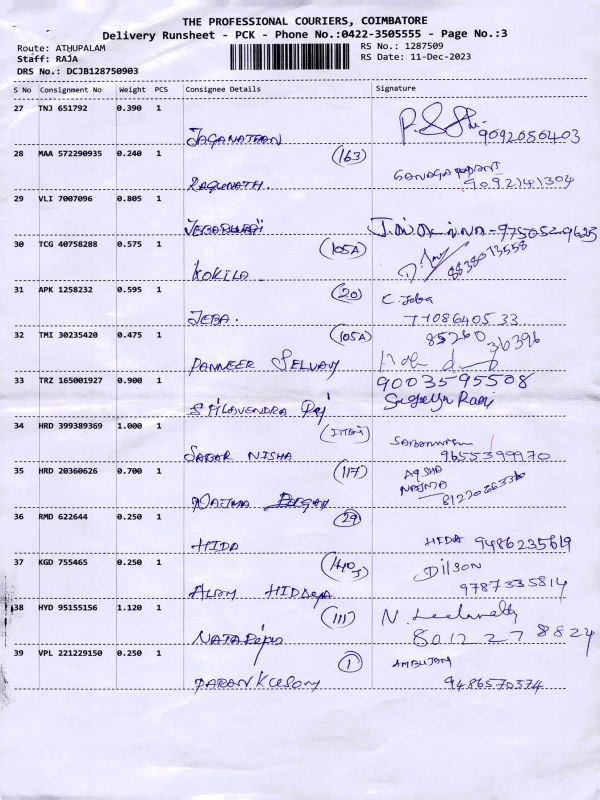 THE PROFESSIONAL COURIERS, COIMBATORE
Delivery Runsheet - PCK - Phone No.:0422-3505555 - Page No.:3
Route: ATHUPALAM RS No.: 1287509
Staff: RAJA RS Date: 11-Dec-2023
DRS No.: DCJB128750903
S No Consignment No Weight PCS Consignee Details Signature
27 TNJ 651792 0.390 1
JAGANATHAN 9092056403
28 MAA 572290935 0.240 1 (163)
RAGUNATH. 9092141304
29 VLI 7007096 0.805 1
30 TCG 40758288 0.575 1 (105A)
KOKILA 8838073558
31 APK 1258232 0.595 1 (20) C. Joba
JEBA. 7708640533
32 TMI 30235420 0.475 1 (105A) 85260 36396
PANNEER SELVAM
33 TRZ 165001927 0.900 1 9003595508
34 HRD 399389369 1.000 1
NISHA 9655399970
35 HRD 20360626 0.700 1 (117)
NAJMA NAJMA
36 RMD 622644 0.250 1 (29)
HIDA HIDA 9486235619
37 KGD 755465 0.250 1 Dilson
9787335814
38 HYD 95155156 1.120 1 (111) N.
8012278824
39 VPL 221229150 0.250 1 (1) AMBUJAM
9486570374